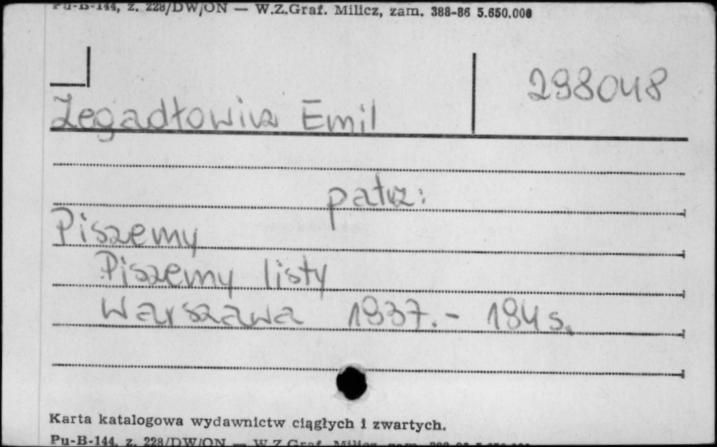 Pu-B-144, z. 228/DW/ON — W.Z.Graf. Milicz, zam. 388-86 5.650.000
298048
Zegadłowicz Emil
patrz:
Piszemy
Piszemy listy
Warszawa 1937. - 184 s.
Karta katalogowa wydawnictw ciągłych i zwartych.
Pu-B-144, z. 228/DW/ON — W.Z.Graf. Milicz, zam.